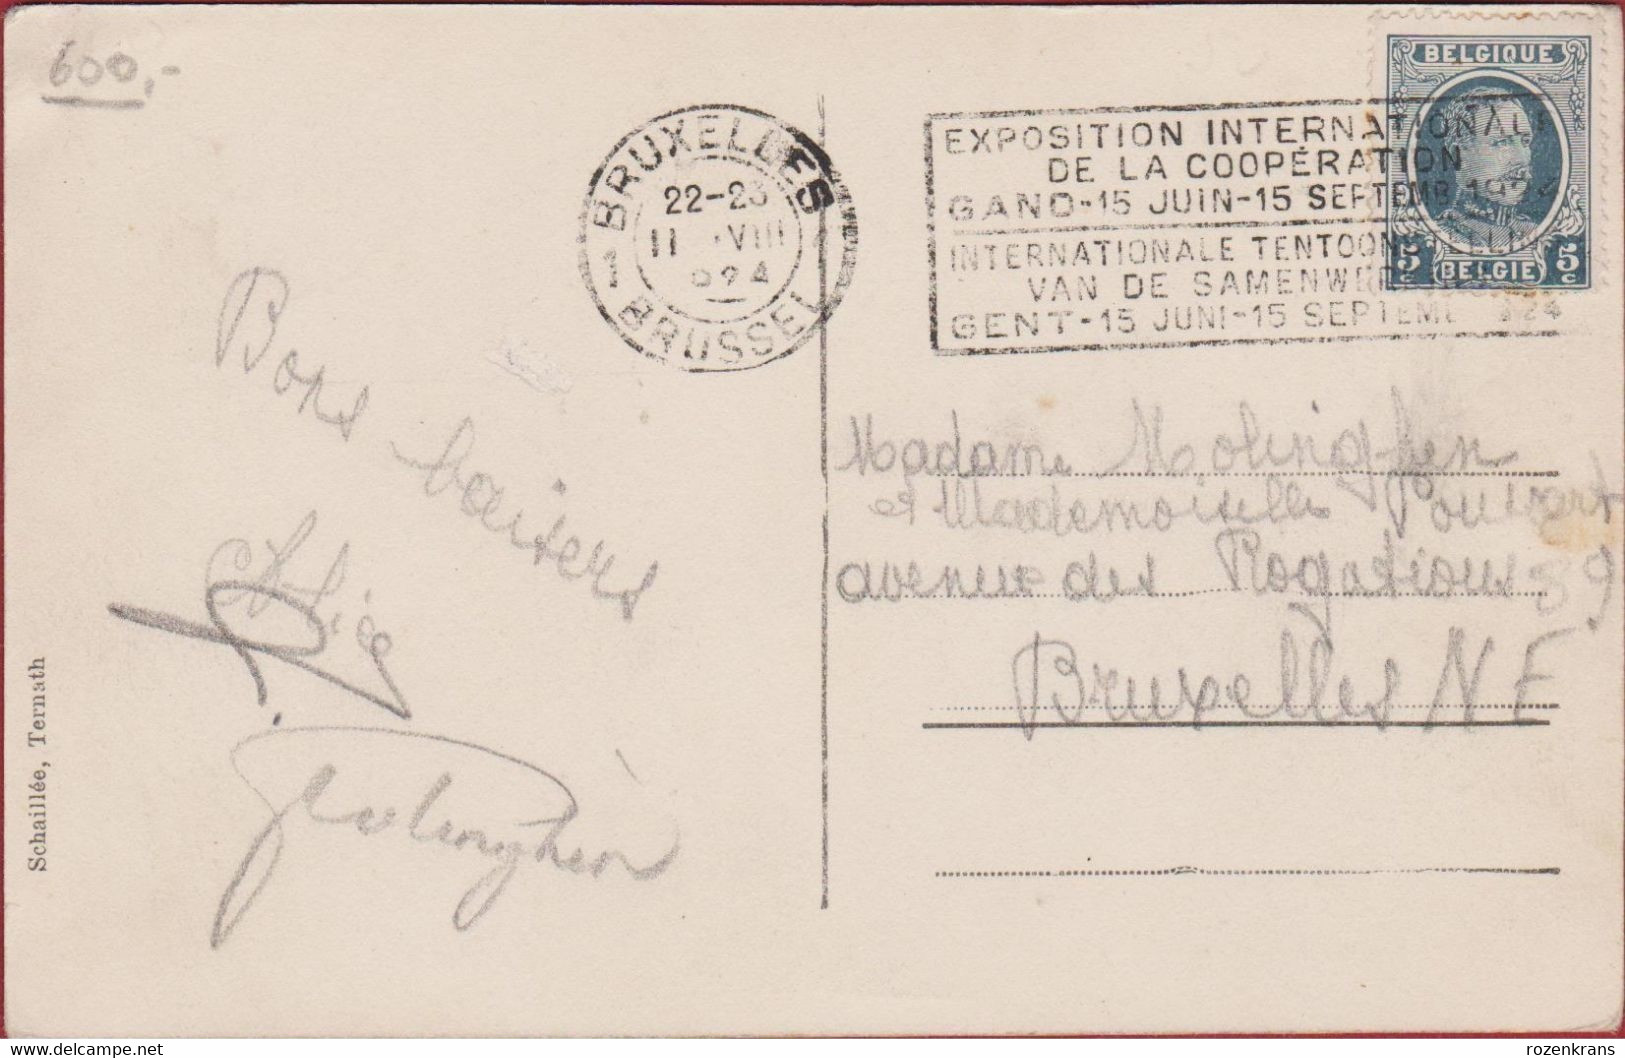 600,-
BRUXELLES
22-23
11 VIII
924
1
BRUSSEL
EXPOSITION INTERNATIONALE
DE LA COOPÉRATION
GAND-15 JUIN-15 SEPTEMB.1924
INTERNATIONALE TENTOONSTELLING
VAN DE SAMENWERKING
GENT-15 JUNI-15 SEPTEMB 1924
BELGIQUE
5c BELGIE 5c
Bons baisers
Madame Molinghen
et Mademoiselle
avenue des Rogations 39
Bruxelles N E
Schaillée, Ternath
rozenkrans